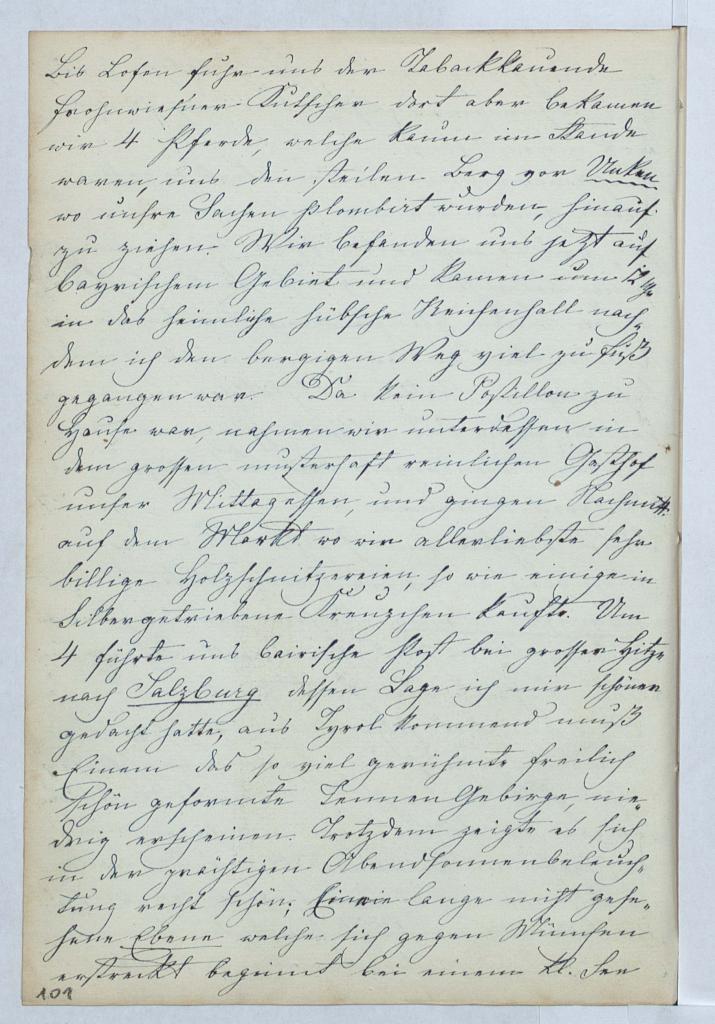 Bis Lofen fuhr uns der Taback kauende
Frohnwiesner Kutscher dort aber bekamen
wir 4 Pferde, welche kaum im Stande
waren, uns den steilen Berg vor Unken
wo unsre Sachen plombirt wurden, hinauf-
zu ziehen. Wir befanden uns jetzt auf
bayrischem Gebiet und kamen um 12 Uhr
in das heimliche hübsche Reichenhall nach-
dem ich den bergigen Weg viel zu Fuß
gegangen war. Da kein Postillon zu
Hause war, nahmen wir unterdessen in
dem grossen musterhaft reinlichen Gasthof
unser Mittagessen, und gingen Nachmitt.
auf dem Markt wo wir allerliebste sehr
billige Holzschnitzereien, so wie einige in
Silber getriebene Kreuzchen kaufte. Um
4 führte uns bairische Post bei grosser Hitze
nach Salzburg dessen Lage ich mir schöner
gedacht hatte, aus Tyrol kommend muß
Einem das so viel gerühmte freilich
schön geformte Tennen Gebirge, nie-
drig erscheinen. Trotzdem zeigte es sich
in der prächtigen Abendsonnenbeleuch-
tung recht schön; Eine lange nicht gese-
hene Ebene welche sich gegen München
erstreckt beginnt bei einem kl. See
101